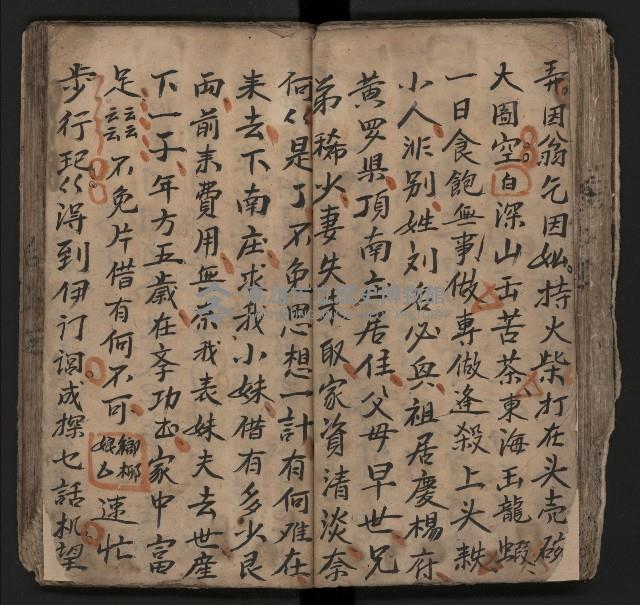 弄因翁乞因如持火柴打在头壳
大圖空白深山出苦茶東海出龍蝦
一日食飽無事做專做逢殺上头
小人非别姓刘名必興祖居慶楊府
黄罗県頂南庄居住父母早世兄
弟稀少妻失未取家資清淡奈
何々是了不免思想一計有何难在
来去下南庄求我小妹借有多少艮
両前来費用無奈我表妹夫去世産
下一子年方五歲在李功出家中富
足云云云云不免片借有何不可鄉柳娘上速忙
步行己々得到伊订调成探乜話机望